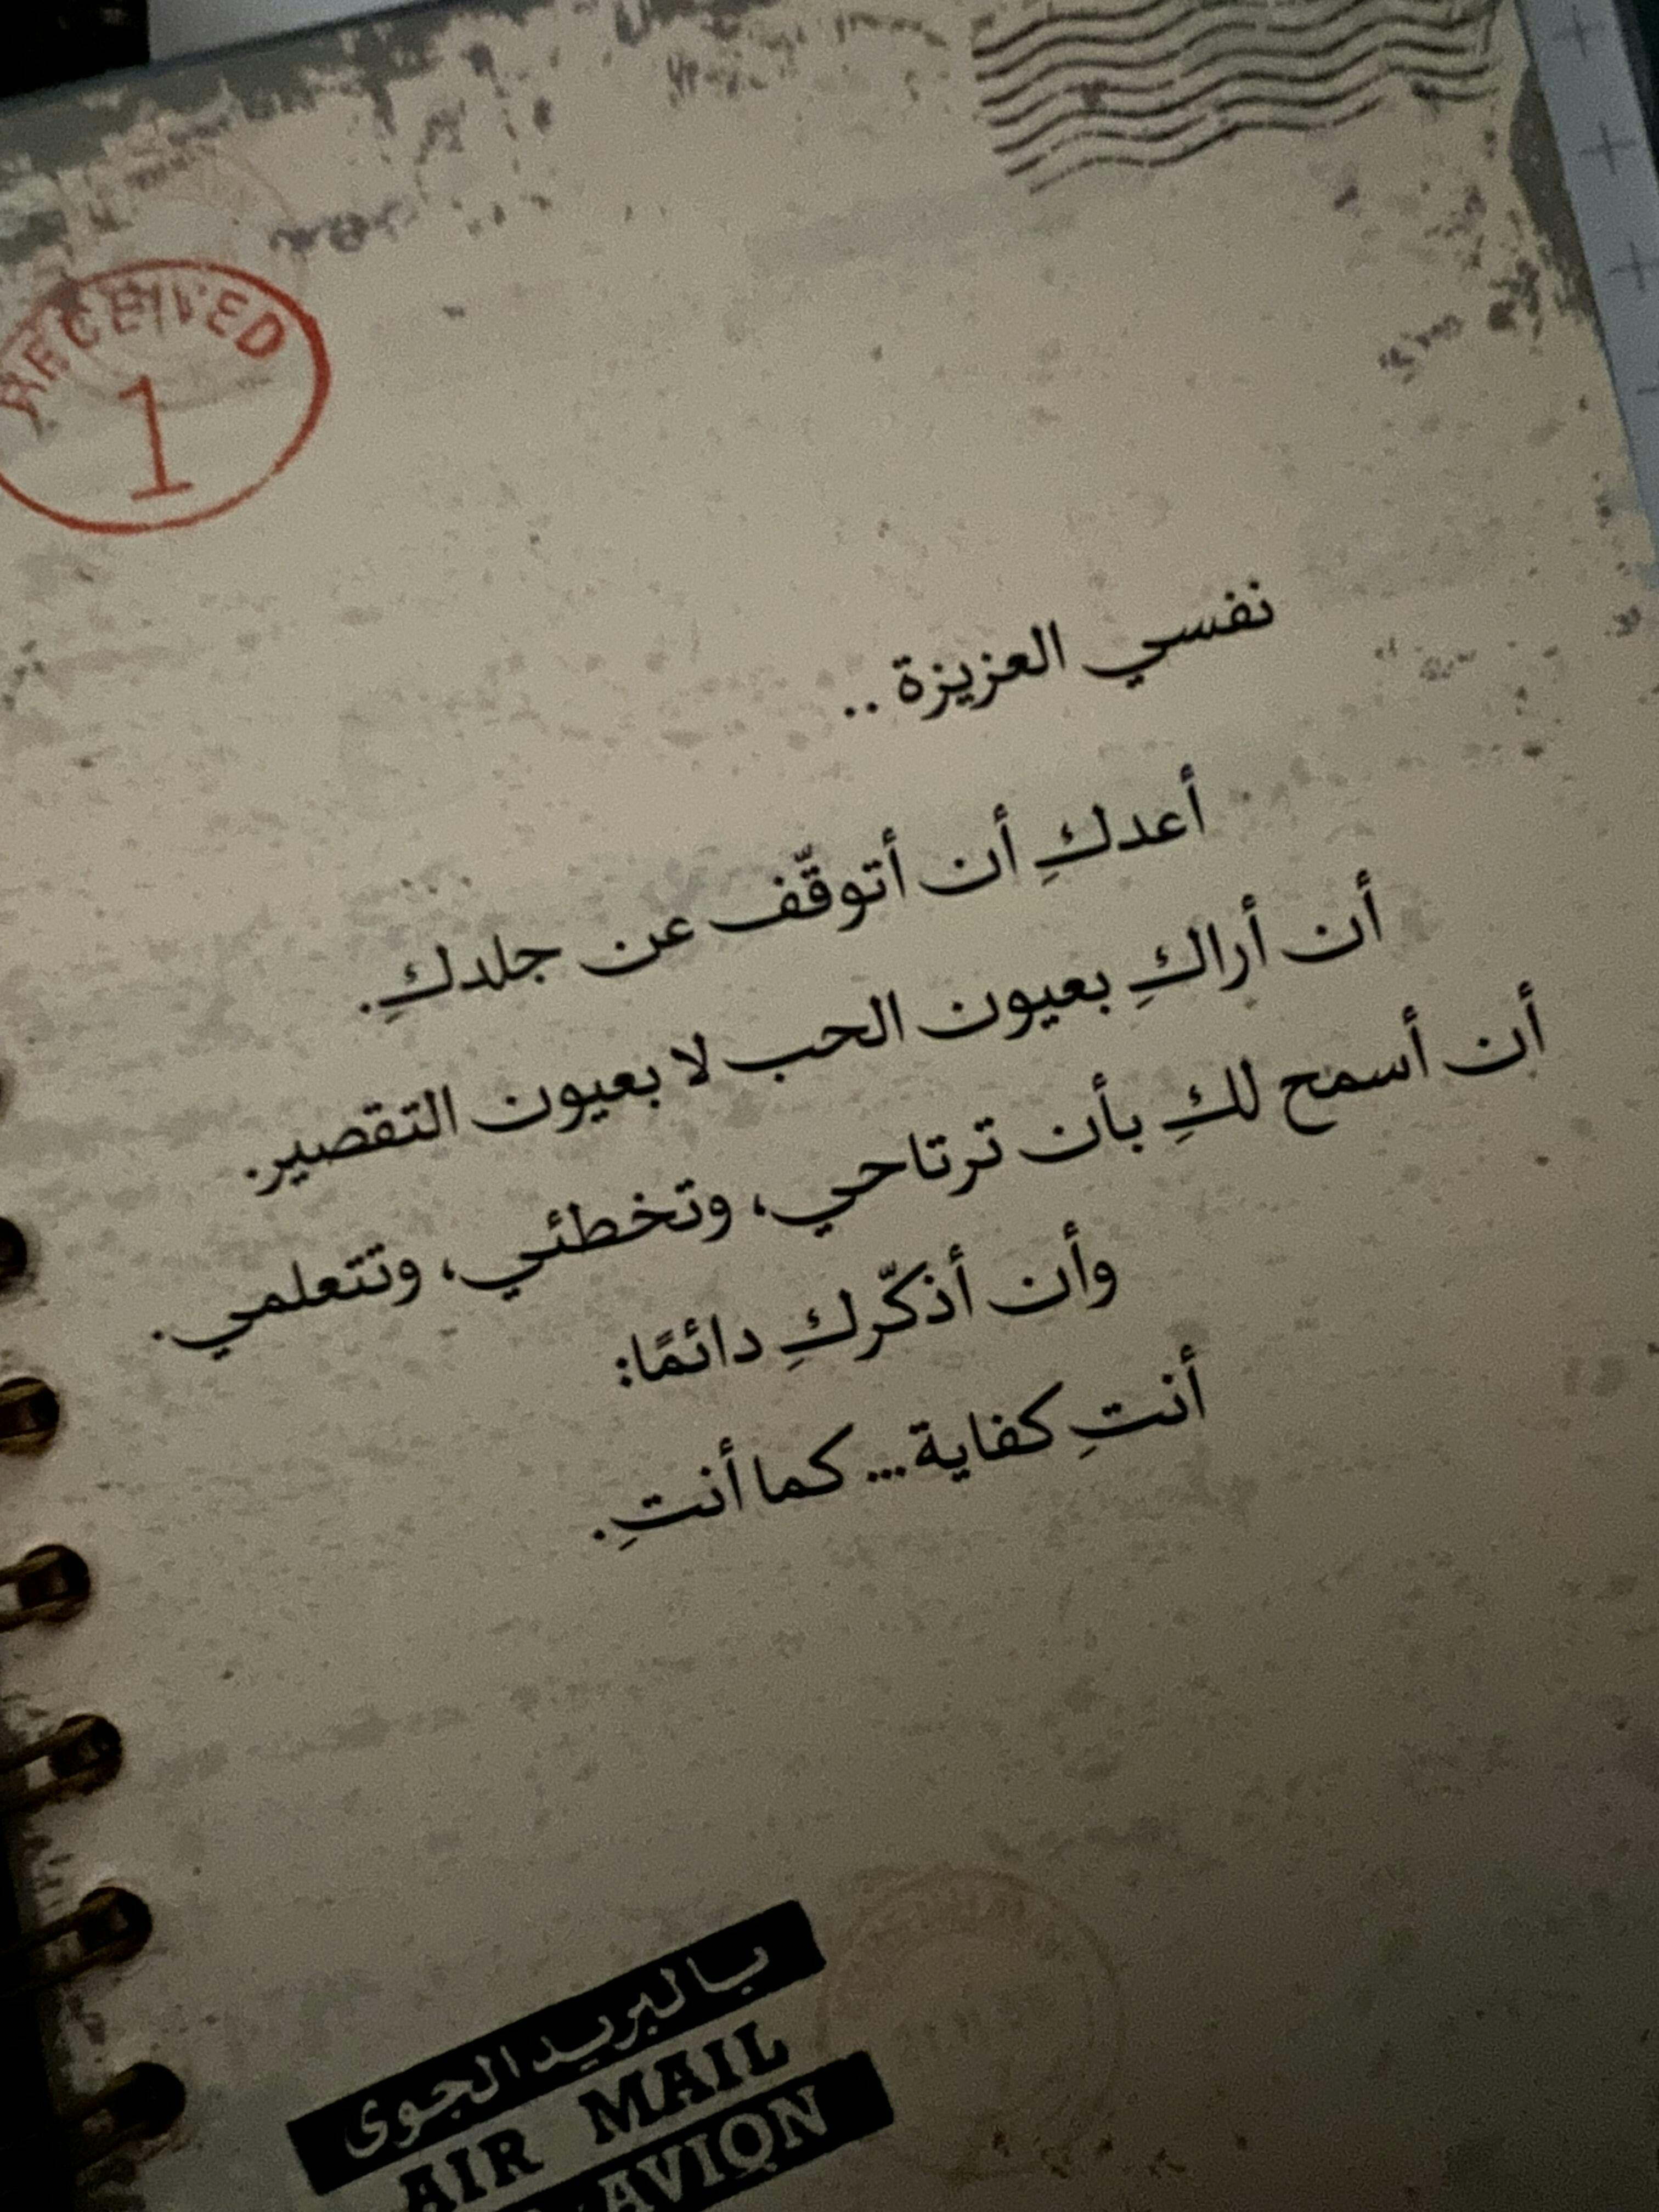 RECEIVED
1
نفسي العزيزة ..
أعدكِ أن أتوقّف عن جلدكِ.
أن أراكِ بعيون الحب لا بعيون التقصير.
أن أسمح لكِ بأن ترتاحي، وتخطئي، وتتعلمي.
وأن أذكّركِ دائمًا:
أنتِ كفاية... كما أنتِ.
بالبريد الجوى
AIR MAIL
AVION